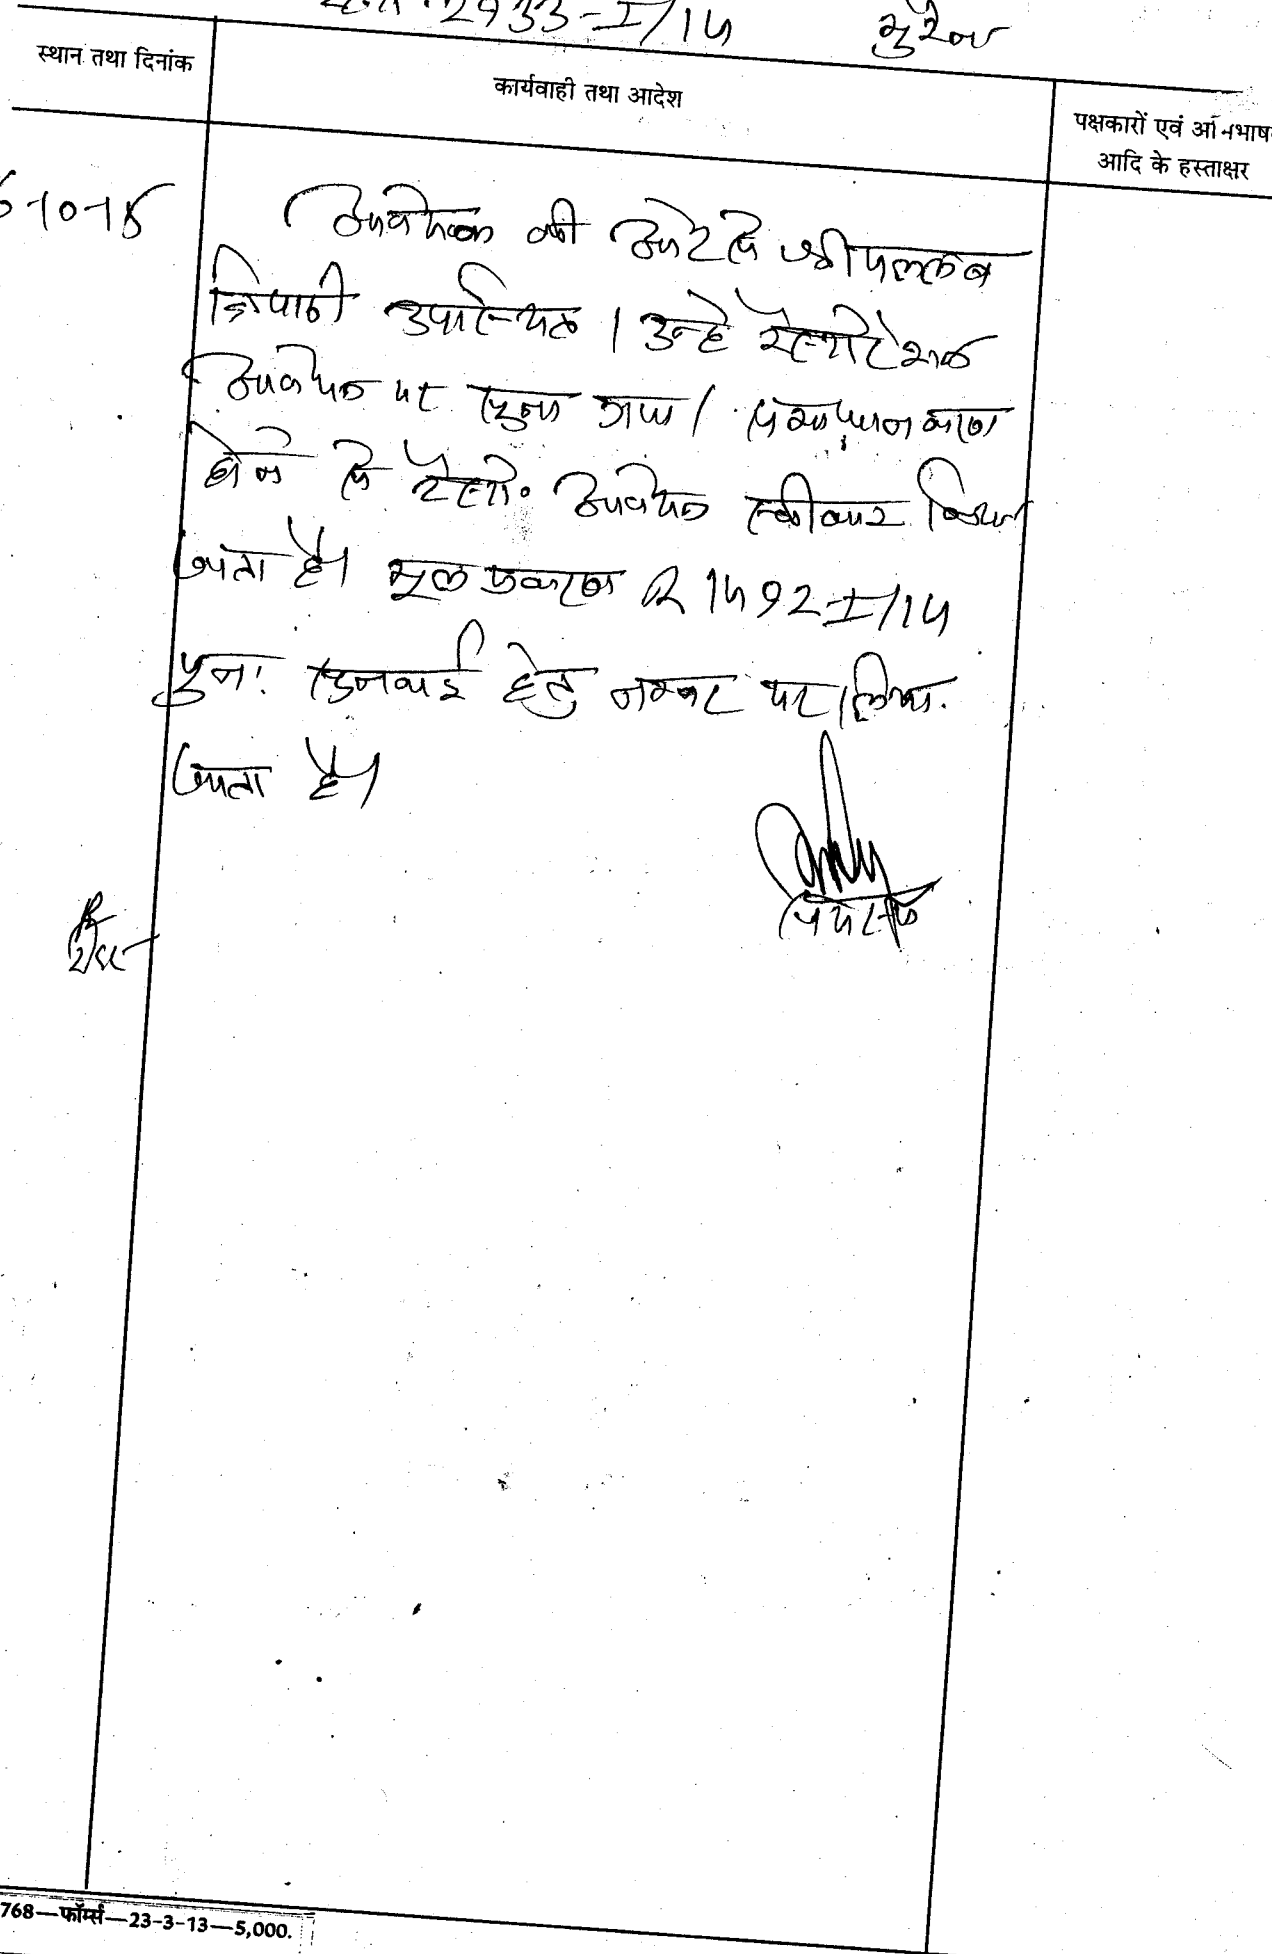 2933-I/14 मुरैना
स्थान तथा दिनांक
कार्यवाही तथा आदेश
पक्षकारों एवं अभिभाषक
आदि के हस्ताक्षर
-10-15
आवेदक की ओर से श्री पल्लव
त्रिपाठी उपस्थित । उन्हे रेस्टोरेशन
आवेदन पर सुना गया । समाधान कारण
होने से रेस्टो. आवेदन स्वीकार किया
जाता है। मूल प्रकरण R 1492-I/14
पुनः सुनवाई हेतु नम्बर पर लिया
जाता है।
सदस्य
768—फॉर्म्स—23-3-13—5,000.